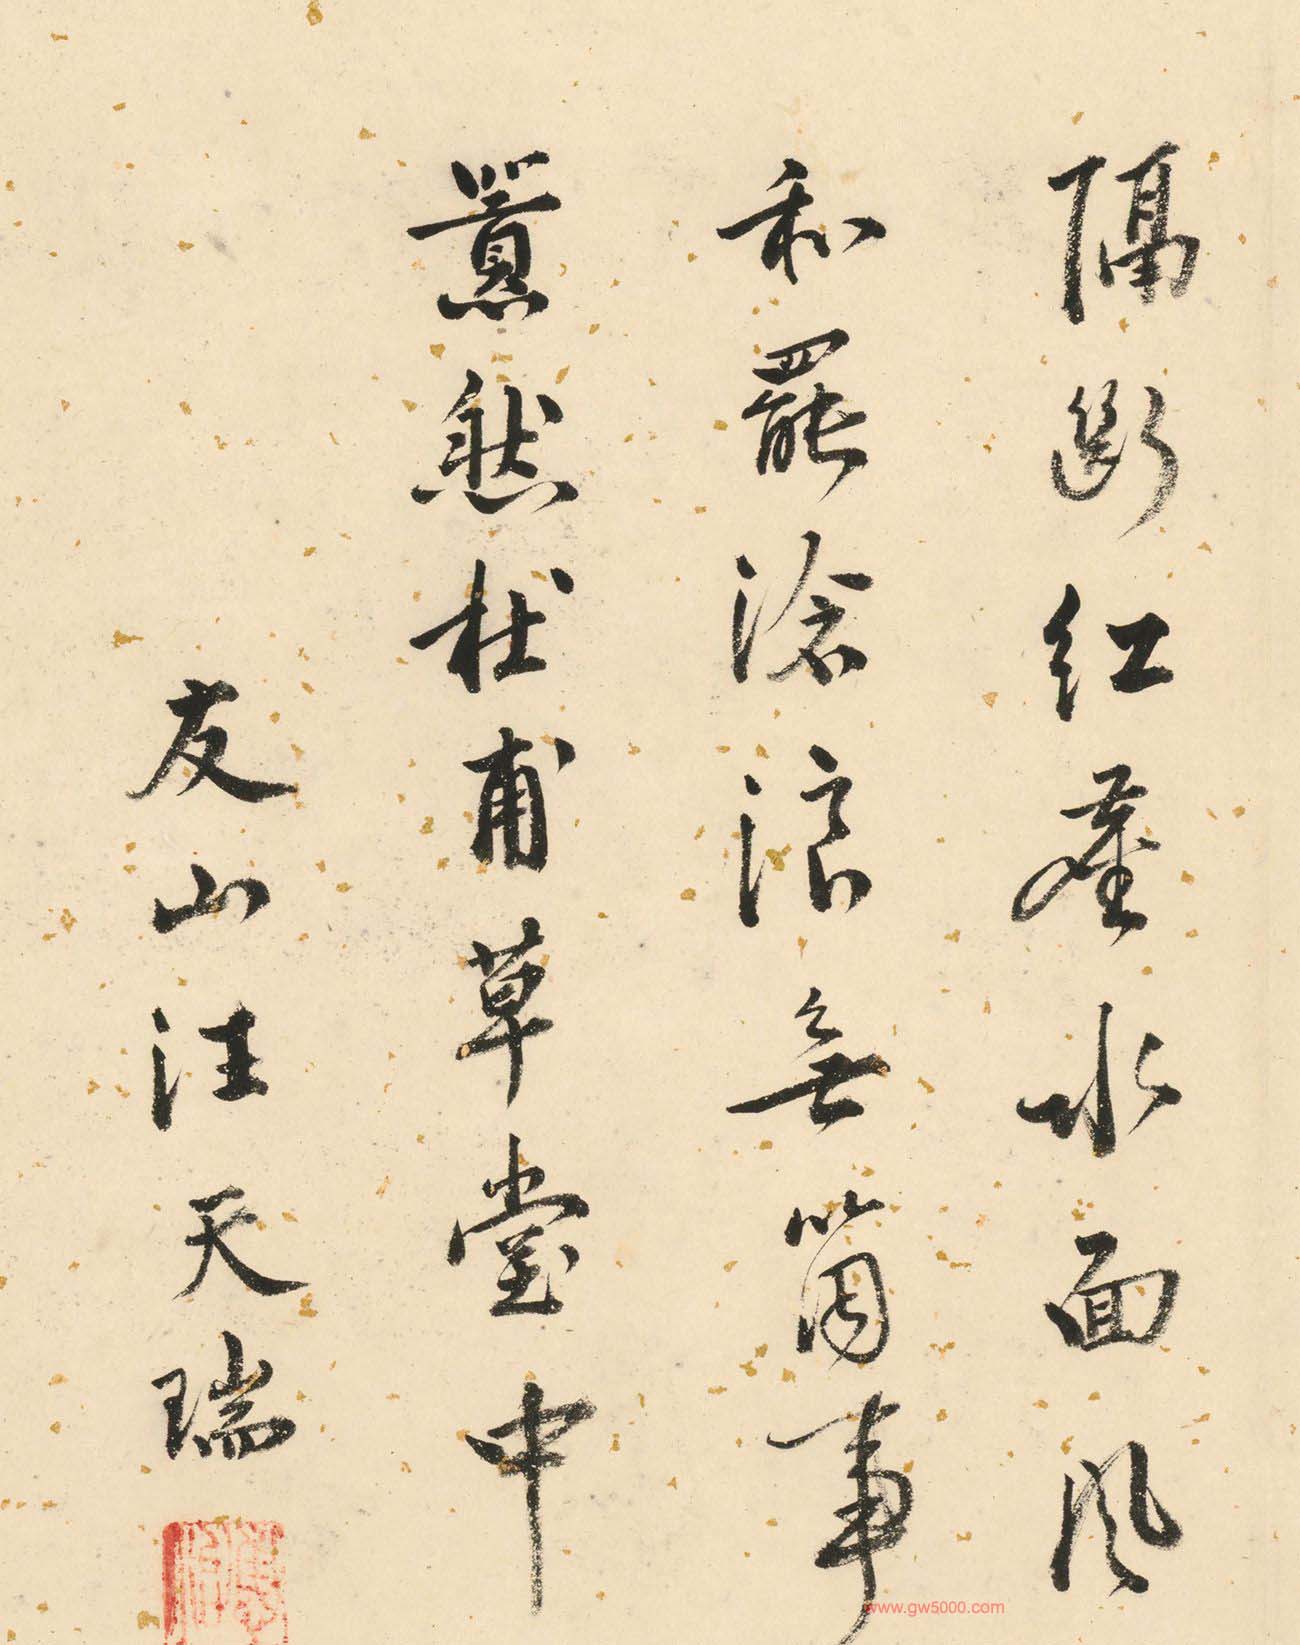 隔斷紅塵水面風
和罷滄浪無箇事
囂然杜甫草堂中
友山汪天瑞
www.gw5000.com